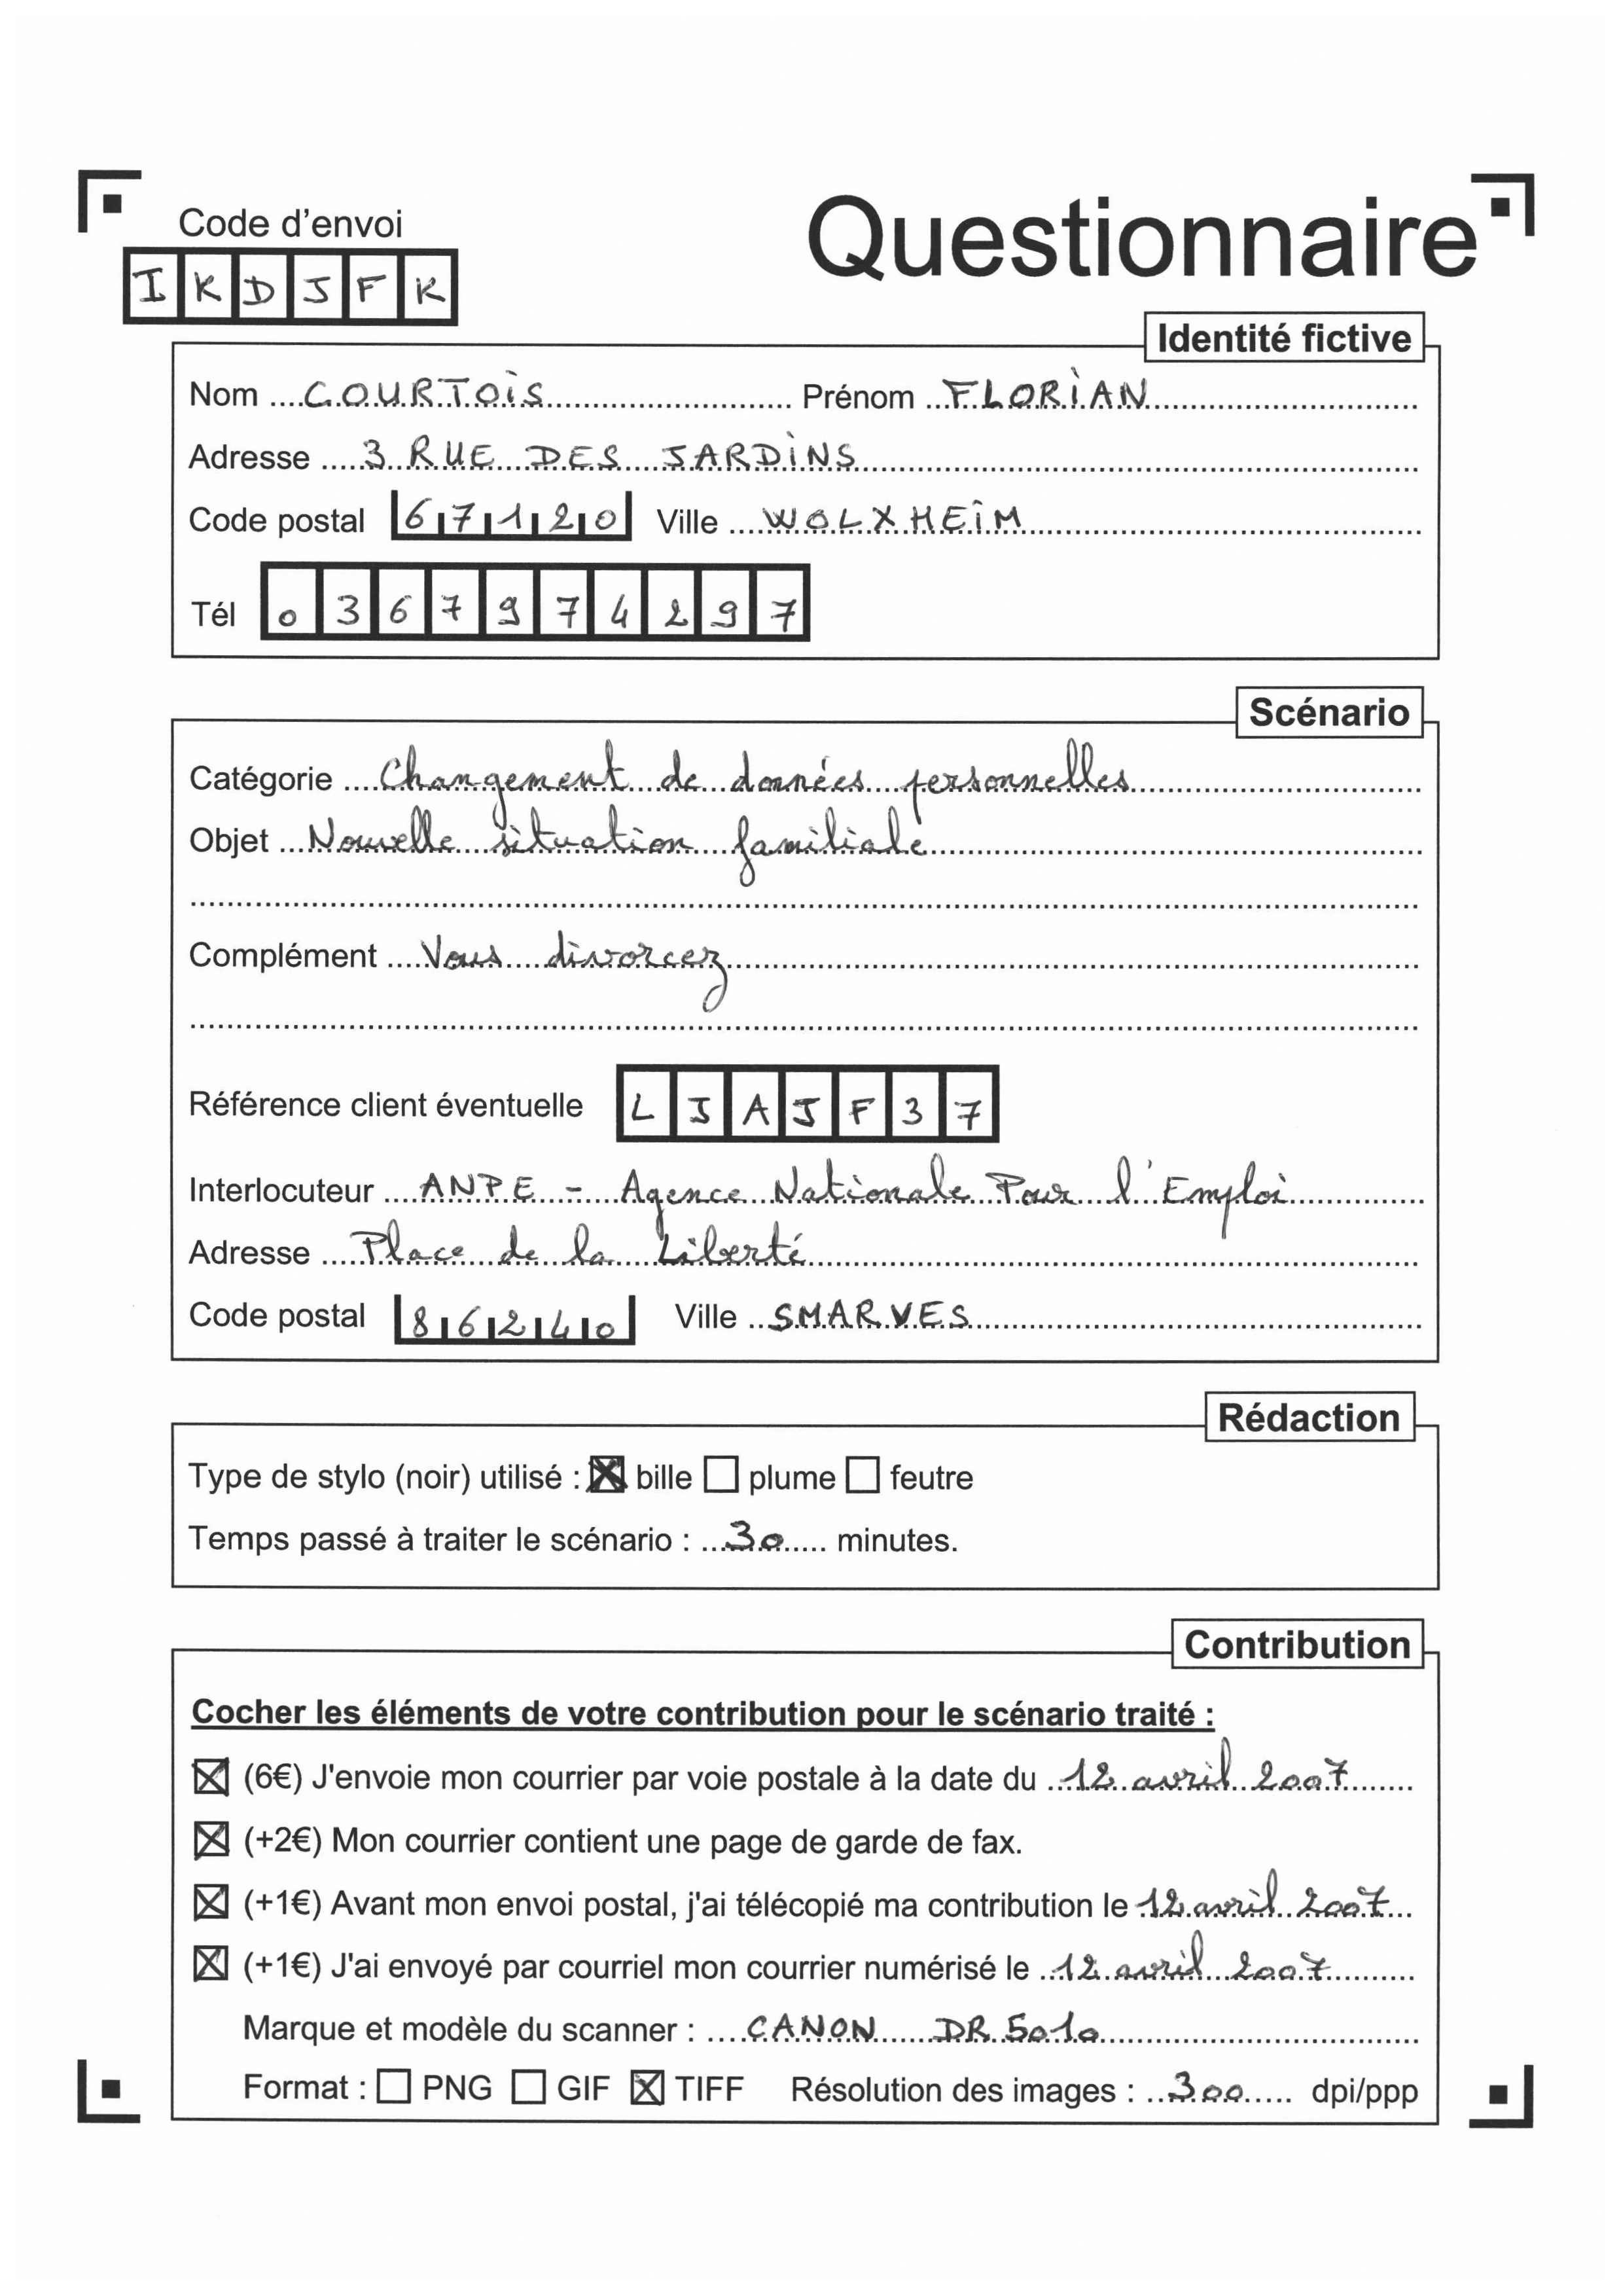 Code d'envoi
Questionnaire
IKDJFK
Identité fictive
Nom COURTOIS Prénom FLORIAN
Adresse 3 RUE DES JARDINS
Code postal 67120 Ville WOLXHEIM
Tél 0367974297
Scénario
Catégorie Changement de données personnelles
Objet Nouvelle situation familiale
Complément Vous divorcez
Référence client éventuelle LJAJF37
Interlocuteur ANPE - Agence Nationale Pour l'Emploi
Adresse Place de la Liberté
Code postal 86240 Ville SMARVES
Rédaction
Type de stylo (noir) utilisé : ☒ bille ☐ plume ☐ feutre
Temps passé à traiter le scénario : 30 minutes.
Contribution
Cocher les éléments de votre contribution pour le scénario traité :
☒ (6€) J'envoie mon courrier par voie postale à la date du 12 avril 2007
☒ (+2€) Mon courrier contient une page de garde de fax.
☒ (+1€) Avant mon envoi postal, j'ai télécopié ma contribution le 12 avril 2007
☒ (+1€) J'ai envoyé par courriel mon courrier numérisé le 12 avril 2007
Marque et modèle du scanner : CANON DR 5010
Format : ☐ PNG ☐ GIF ☒ TIFF Résolution des images : 300 dpi/ppp